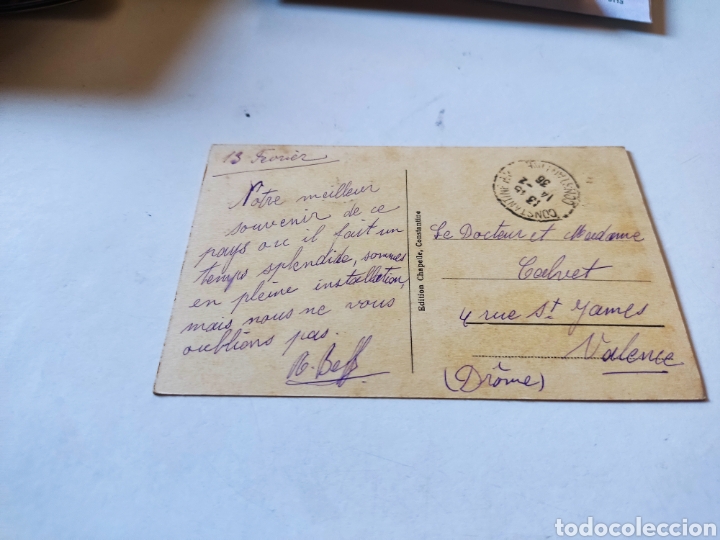 13 Fevrier
Notre meilleur
souvenir de ce
pays ou il fait un
temps splendide, sommes
en pleine installation,
mais nous ne vous
oublions pas.
Edition Chapelle, Constantine
CONSTANTINE
13
-2
36
Le Docteur et Madame
Calvet
4 rue St James
Valence
(Drôme)
todocoleccion